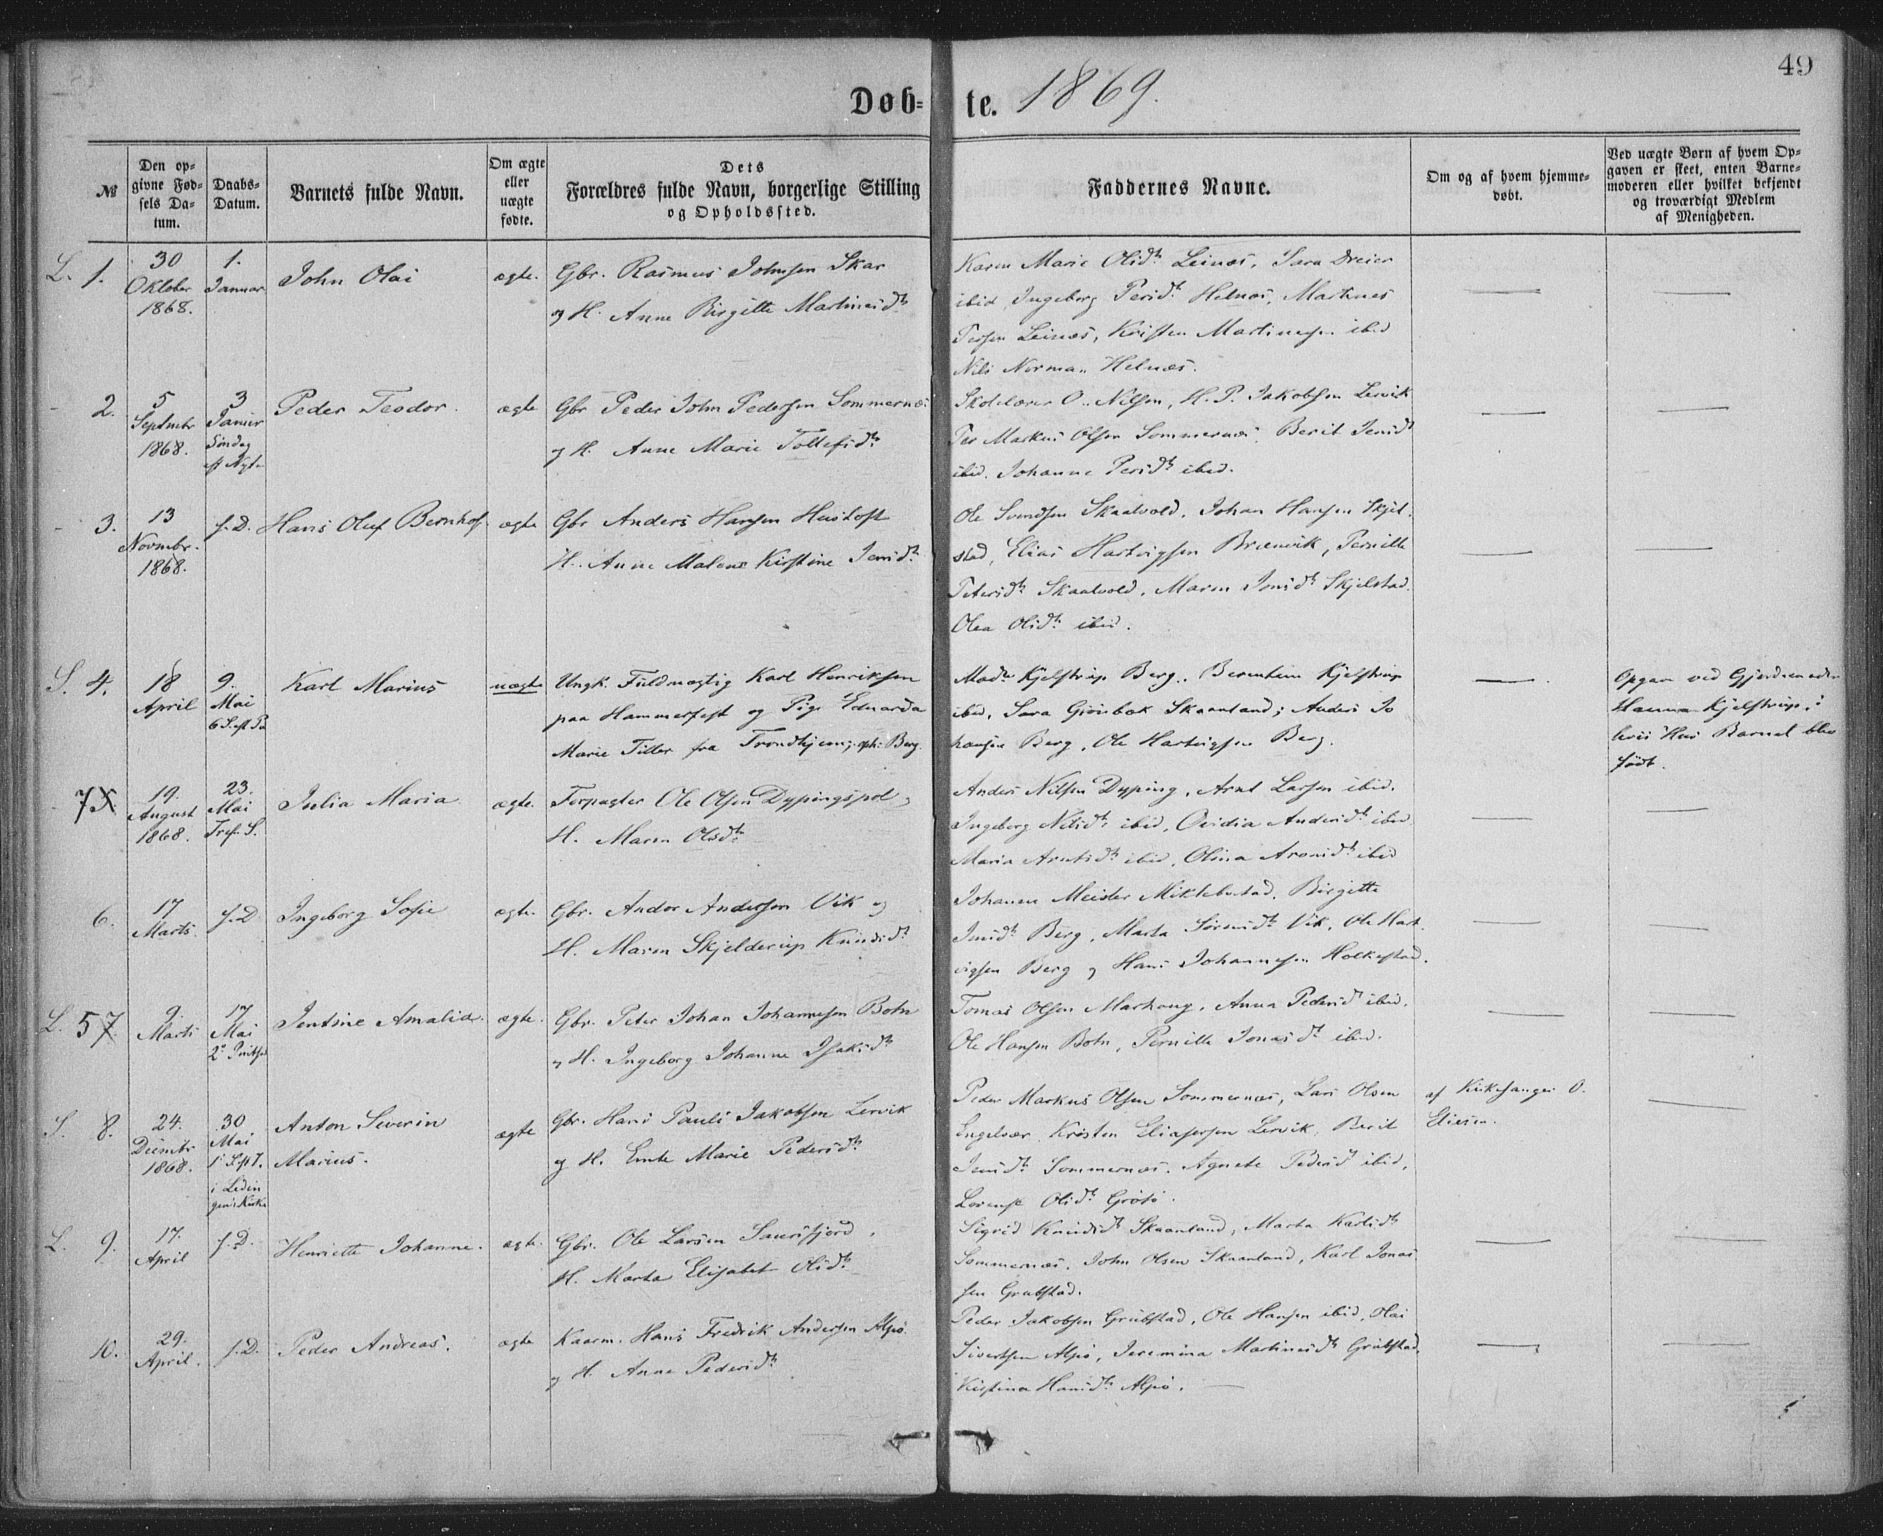 49
Døb- te. 1869.
№
Den op-
givne Fød-
sels Da-
tum.
Daabs-
Datum.
Barnets fulde Navn.
Om ægte
eller
uægte
fødte.
Dets
Forældres fulde Navn, borgerlige Stilling
og Opholdssted.
Faddernes Navne.
Om og af hvem hjemme-
døbt.
Ved uægte Børn af hvem Op-
gaven er skeet, enten Barne-
moderen eller hvilket bekjendt
og troværdigt Medlem
af Menigheden.
L. 1.
30
Oktober
1868.
1.
Januar
John Olai
ægte.
Gbr. Rasmus Johnsen Skar
og H. Anne Birgitte Martinusdtr
Karen Marie Olsdtr Leinæs, Sara Dreier
ibid, Ingeborg Persdtr Helnæs, Martinus
Persen Leinæs, Kristen Martinusen ibid
Nils Norman Helnæs.
2.
5
Septembr
1868.
3
Januar
Søndag
eft Nytr
Peder Teodor.
ægte
Gbr Peder John Pedersen Sommernæs
og H. Anne Marie Tollefsdtr
Skolelærer O. Nilsen, H. P. Jakobsen Lervik
Per Markus Olsen Sommernæs, Berit Jensdtr
ibid. Johanne Persdtr ibid.
3.
13
Novmbr.
1868.
s. D.
Hans Oluf Bernhof.
ægte
Gbr Anders Hansen
H. Anne Malene Kirstine Jensdtr
Ole Svendsen Skaalvold, Johan Hansen Skjel-
stad, Elias Hartvigsen Brænvik, Pernille
Petersdtr Skaalvold, Maren Jonsdtr Skjelstad.
Olea Olsdtr ibid.
S. 4.
18
April
9.
Mai
6 S. eft Pa
Karl Marius
uægte
Ungk. Fuldmægtig Karl Henriksen
paa Hammerfest og Pige Eduarda
Marie Tiller fra Trondhjem, oph: Berg.
Madm Kjelstrup Berg, Berentine Kjelstrup
ibid, Sara Grønbæk Skaanland; Anders Jo
hansen Berg, Ole Hartvigsen Berg.
Opgav ved Gjordemoder
Hanna Kjelstrup, i
hvis Hus Barnet blev
født.
7
19.
August
1868.
23.
Mai
Tref. S.
Julia Maria
ægte.
Forpagter Ole Olsen Dypingspol,
H. Maren Olsdtr
Anders Nilsen Dyping, Arnt Larsen ibid.
Ingeborg Nilsdtr ibid, Ovidia Andersdtr ibid
Maria Arntsdtr ibid, Olina Aronsdtr ibid
6.
17
Marts
s. D
Ingeborg Sofie
ægte.
Gbr. Andor Andersen Vik og
H. Maren Skjelderup Knudsdtr
Johannes Meister Miklebostad, Birgitte
Jensdtr Berg, Marta Sørensdtr Vik, Ole Hart-
vigsen Berg og Hans Johannesen Holkestad.
L. 5
9.
Marts
17
Mai
2d Pintsed
Jentine Amalia
ægte.
Gbr. Peter Johan Johannesen Botn
og H. Ingeborg Johanne Isaksdtr
Tomas Olsen Markong, Anna Pedersdtr ibid.
Ole Hansen Botn, Pernille Jonasdtr ibid.
S. 8.
24.
Decembr
1868.
30
Mai
1 S. eft T.
i Lødin
gens Kirke
Anton Severin
Marius.
ægte
Gbr. Hans Pauli Jakobsen Lervik
og H. Emte Marie Pedersdtr
Peder Markus Olsen Sommernæs, Lars Olsen
Engelvær, Kristen Eliasersen Lervik, Berit
Jensdtr Sommernæs, Agnete Pedersdtr ibid,
Lorense Olsdtr Grøtø.
af Kirkesanger O.
Eliesen.
L. 9.
17.
April
s. D.
Henriette Johanne.
ægte.
Gbr. Ole Larsen Saursfjord,
H. Marta Elisabet Olsdtr
Sigrid Knudsdtr Skaanland, Marta Karlsdtr
Sommernæs, John Olsen Skaanland, Karl Jonas
sen Grubstad.
10.
29.
April.
s. D.
Peder Andreas.
ægte
Kaarm. Hans Fredrik Andersen Alpø
og H. Anne Pedersdtr
Peder Jakobsen Grubstad, Ole Hansen ibid, Olai
Sivertsen Alpø, Jeremina Martinusdtr Grubstad,
Kristina Hansdtr Alpø.